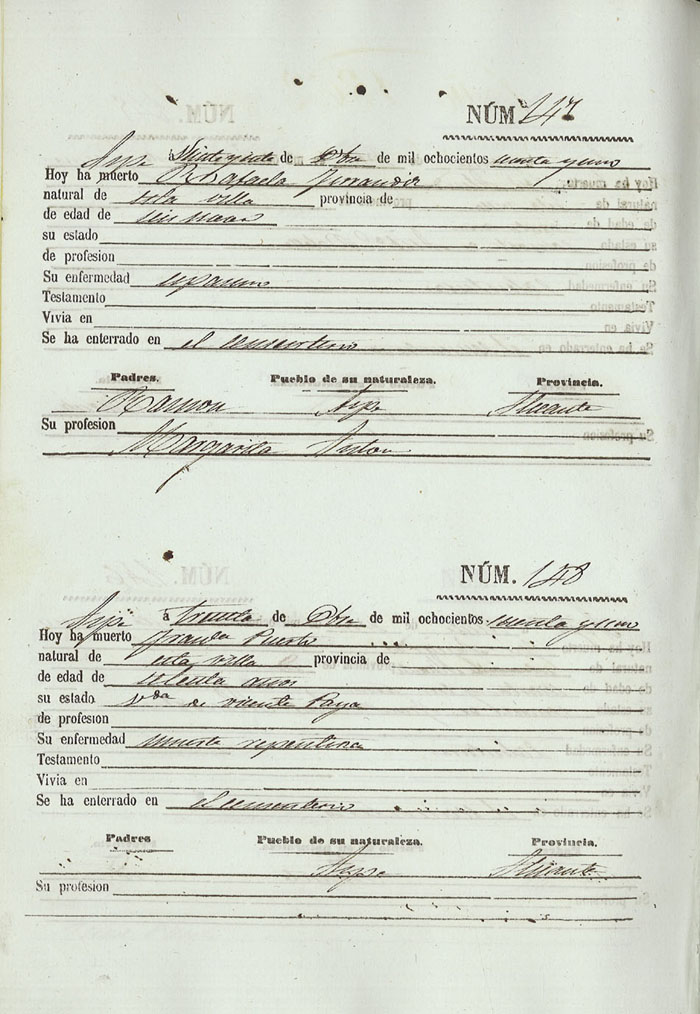 NÚM 147
Aspe á Veinte y siete de Dbre de mil ochocientos sesenta y uno
Hoy ha muerto Rafaela
natural de esta villa provincia de
de edad de seis meses
su estado
de profesion
Su enfermedad espasmo
Testamento
Vivia en
Se ha enterrado en el cementerio
Padres. Pueblo de su naturaleza. Provincia.
Ramon Aspe Alicante
Su profesion
Margarita Anton
NÚM. 148
Aspe á treinta de Dbre de mil ochocientos sesenta y uno
Hoy ha muerto Puerto
natural de esta villa provincia de
de edad de años
su estado Vda de Vicente Paya
de profesion
Su enfermedad muerte repentina
Testamento
Vivia en
Se ha enterrado en el cementerio
Padres Pueblo de su naturaleza. Provincia.
Aspe Alicante
Su profesion